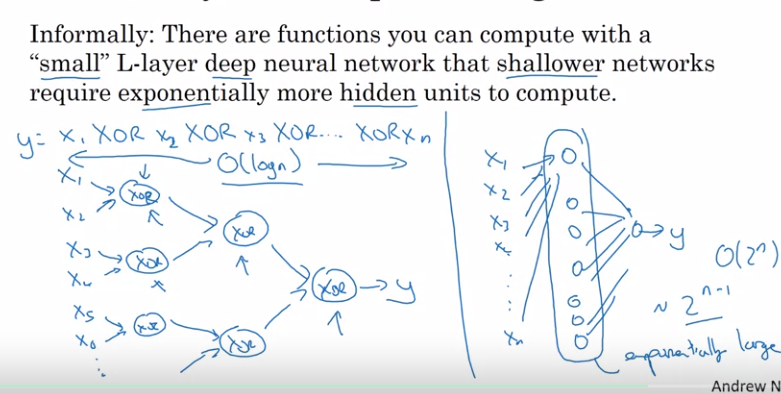 Informally: There are functions you can compute with a
“small” L-layer deep neural network that shallower networks
require exponentially more hidden units to compute.
y= x₁ XOR x₂ XOR x₃ XOR.... XOR xₙ
O(log n)
x₁
XOR
x₂
XOR
x₃
XOR
x₄
XOR
y
x₅
XOR
x₆
XOR
x₁
x₂
x₃
x₄
xₙ
y
O(2ⁿ)
~ 2ⁿ⁻¹
exponentially large
Andrew N